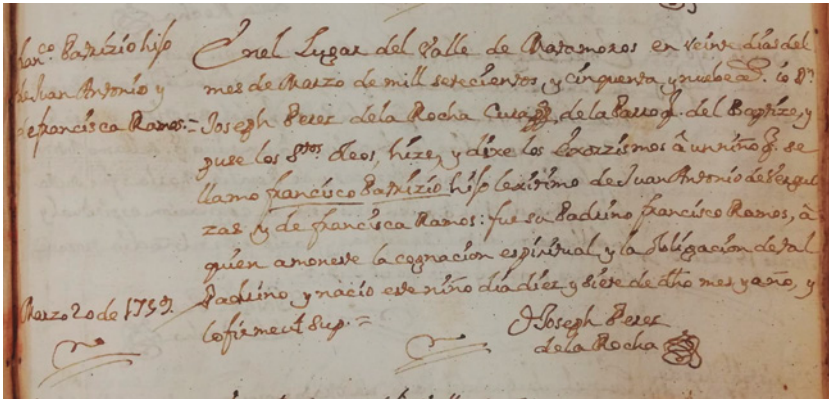 Fran.co Patrizio hijo
de Juan Antonio y
de francisca Ramos.=
Marzo 20 de 1759.
En el Lugar del Valle de Matamoros en veinte dias del
mes de Marzo de mill setecientos, y cinquenta y nuebe a.s io D.n
Joseph Perez dela Rocha Cura de la Parroq. del Baptize, y
puse los S.tos Oleos, hize, y dixe los Exorzismos â un niño q. se
llamo francisco Patrizio hijo lexitimo de Juan Antonio de
zas y de francisca Ramos: fue su Padrino francisco Ramos, â
quien amoneste la cognacion espiritual, y la obligacion de tal
Padrino, y nacio este niño dia diez y siete de dho mes y año, y
lo firme ut Sup.=
D Joseph Perez
de la Rocha